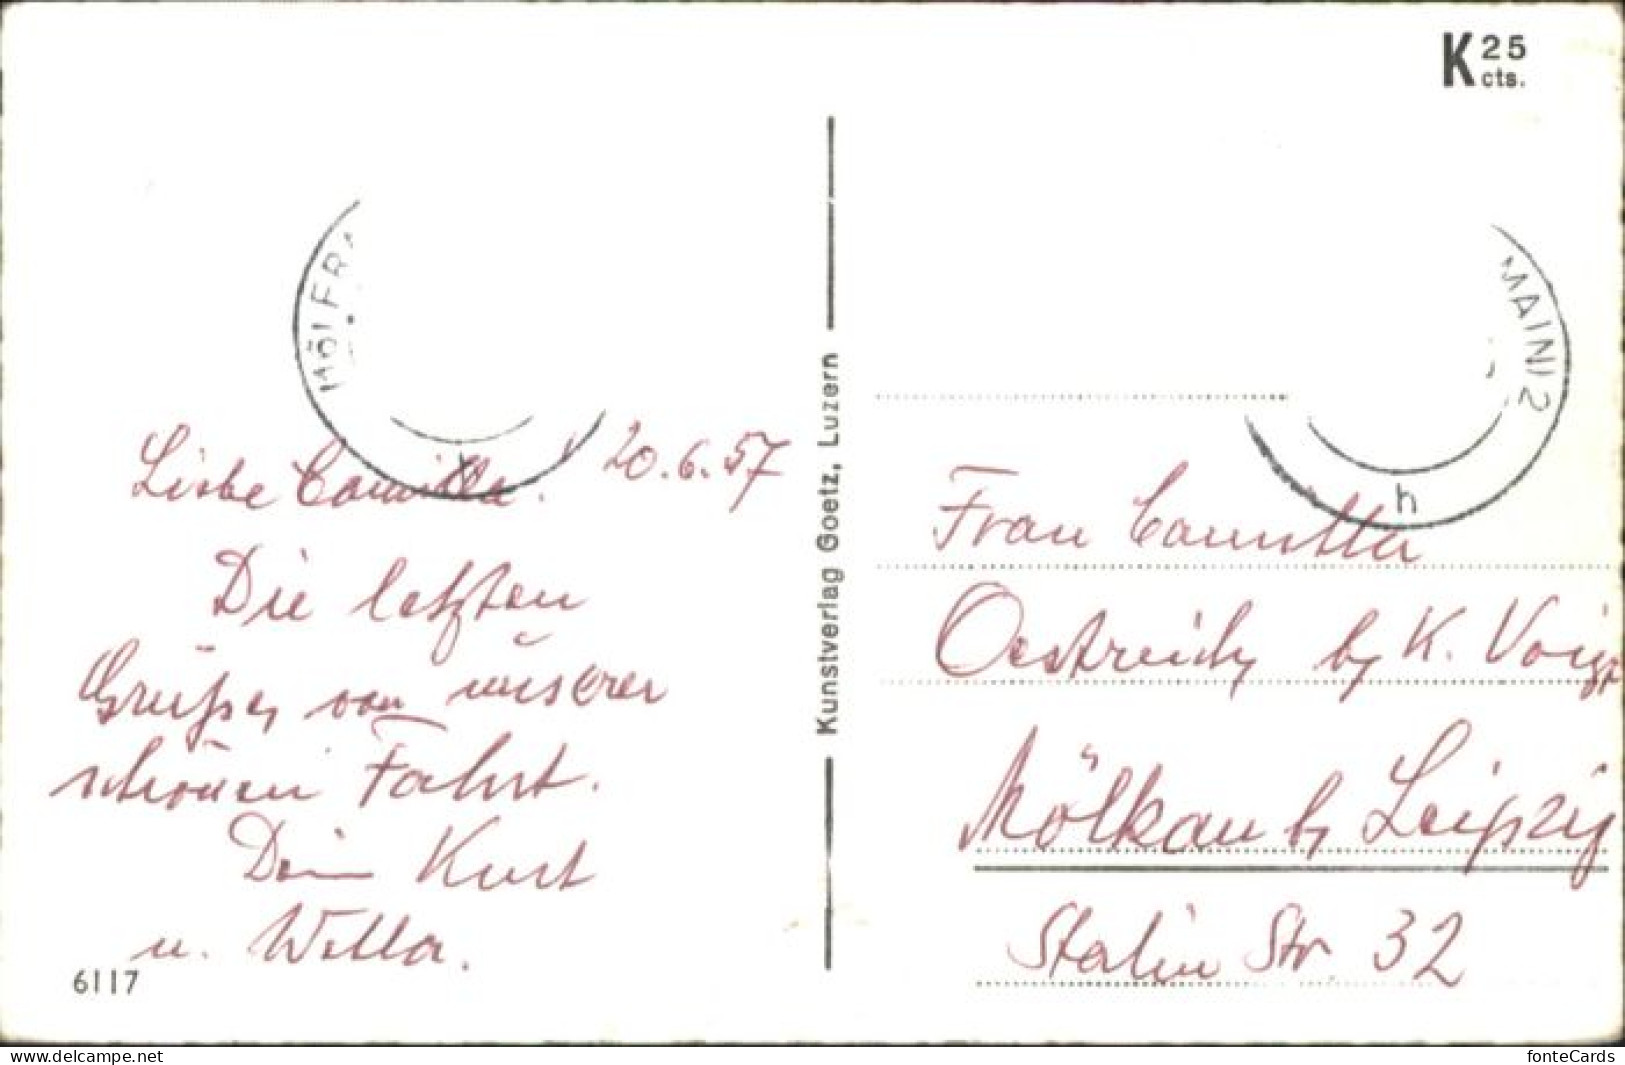 K 25
cts.
MAIN) 2
h
20.6.57
Liebe Camilla!
Die letzten
Grüße von unserer
schönen Fahrt.
Dein Kurt
u. Willa.
6117
Kunstverlag Goetz, Luzern
Frau Camilla
Oestreich b/ K. Voigt
Mölkau b/ Leipzig
Stalin Str. 32
www.delcampe.net
fonteCards